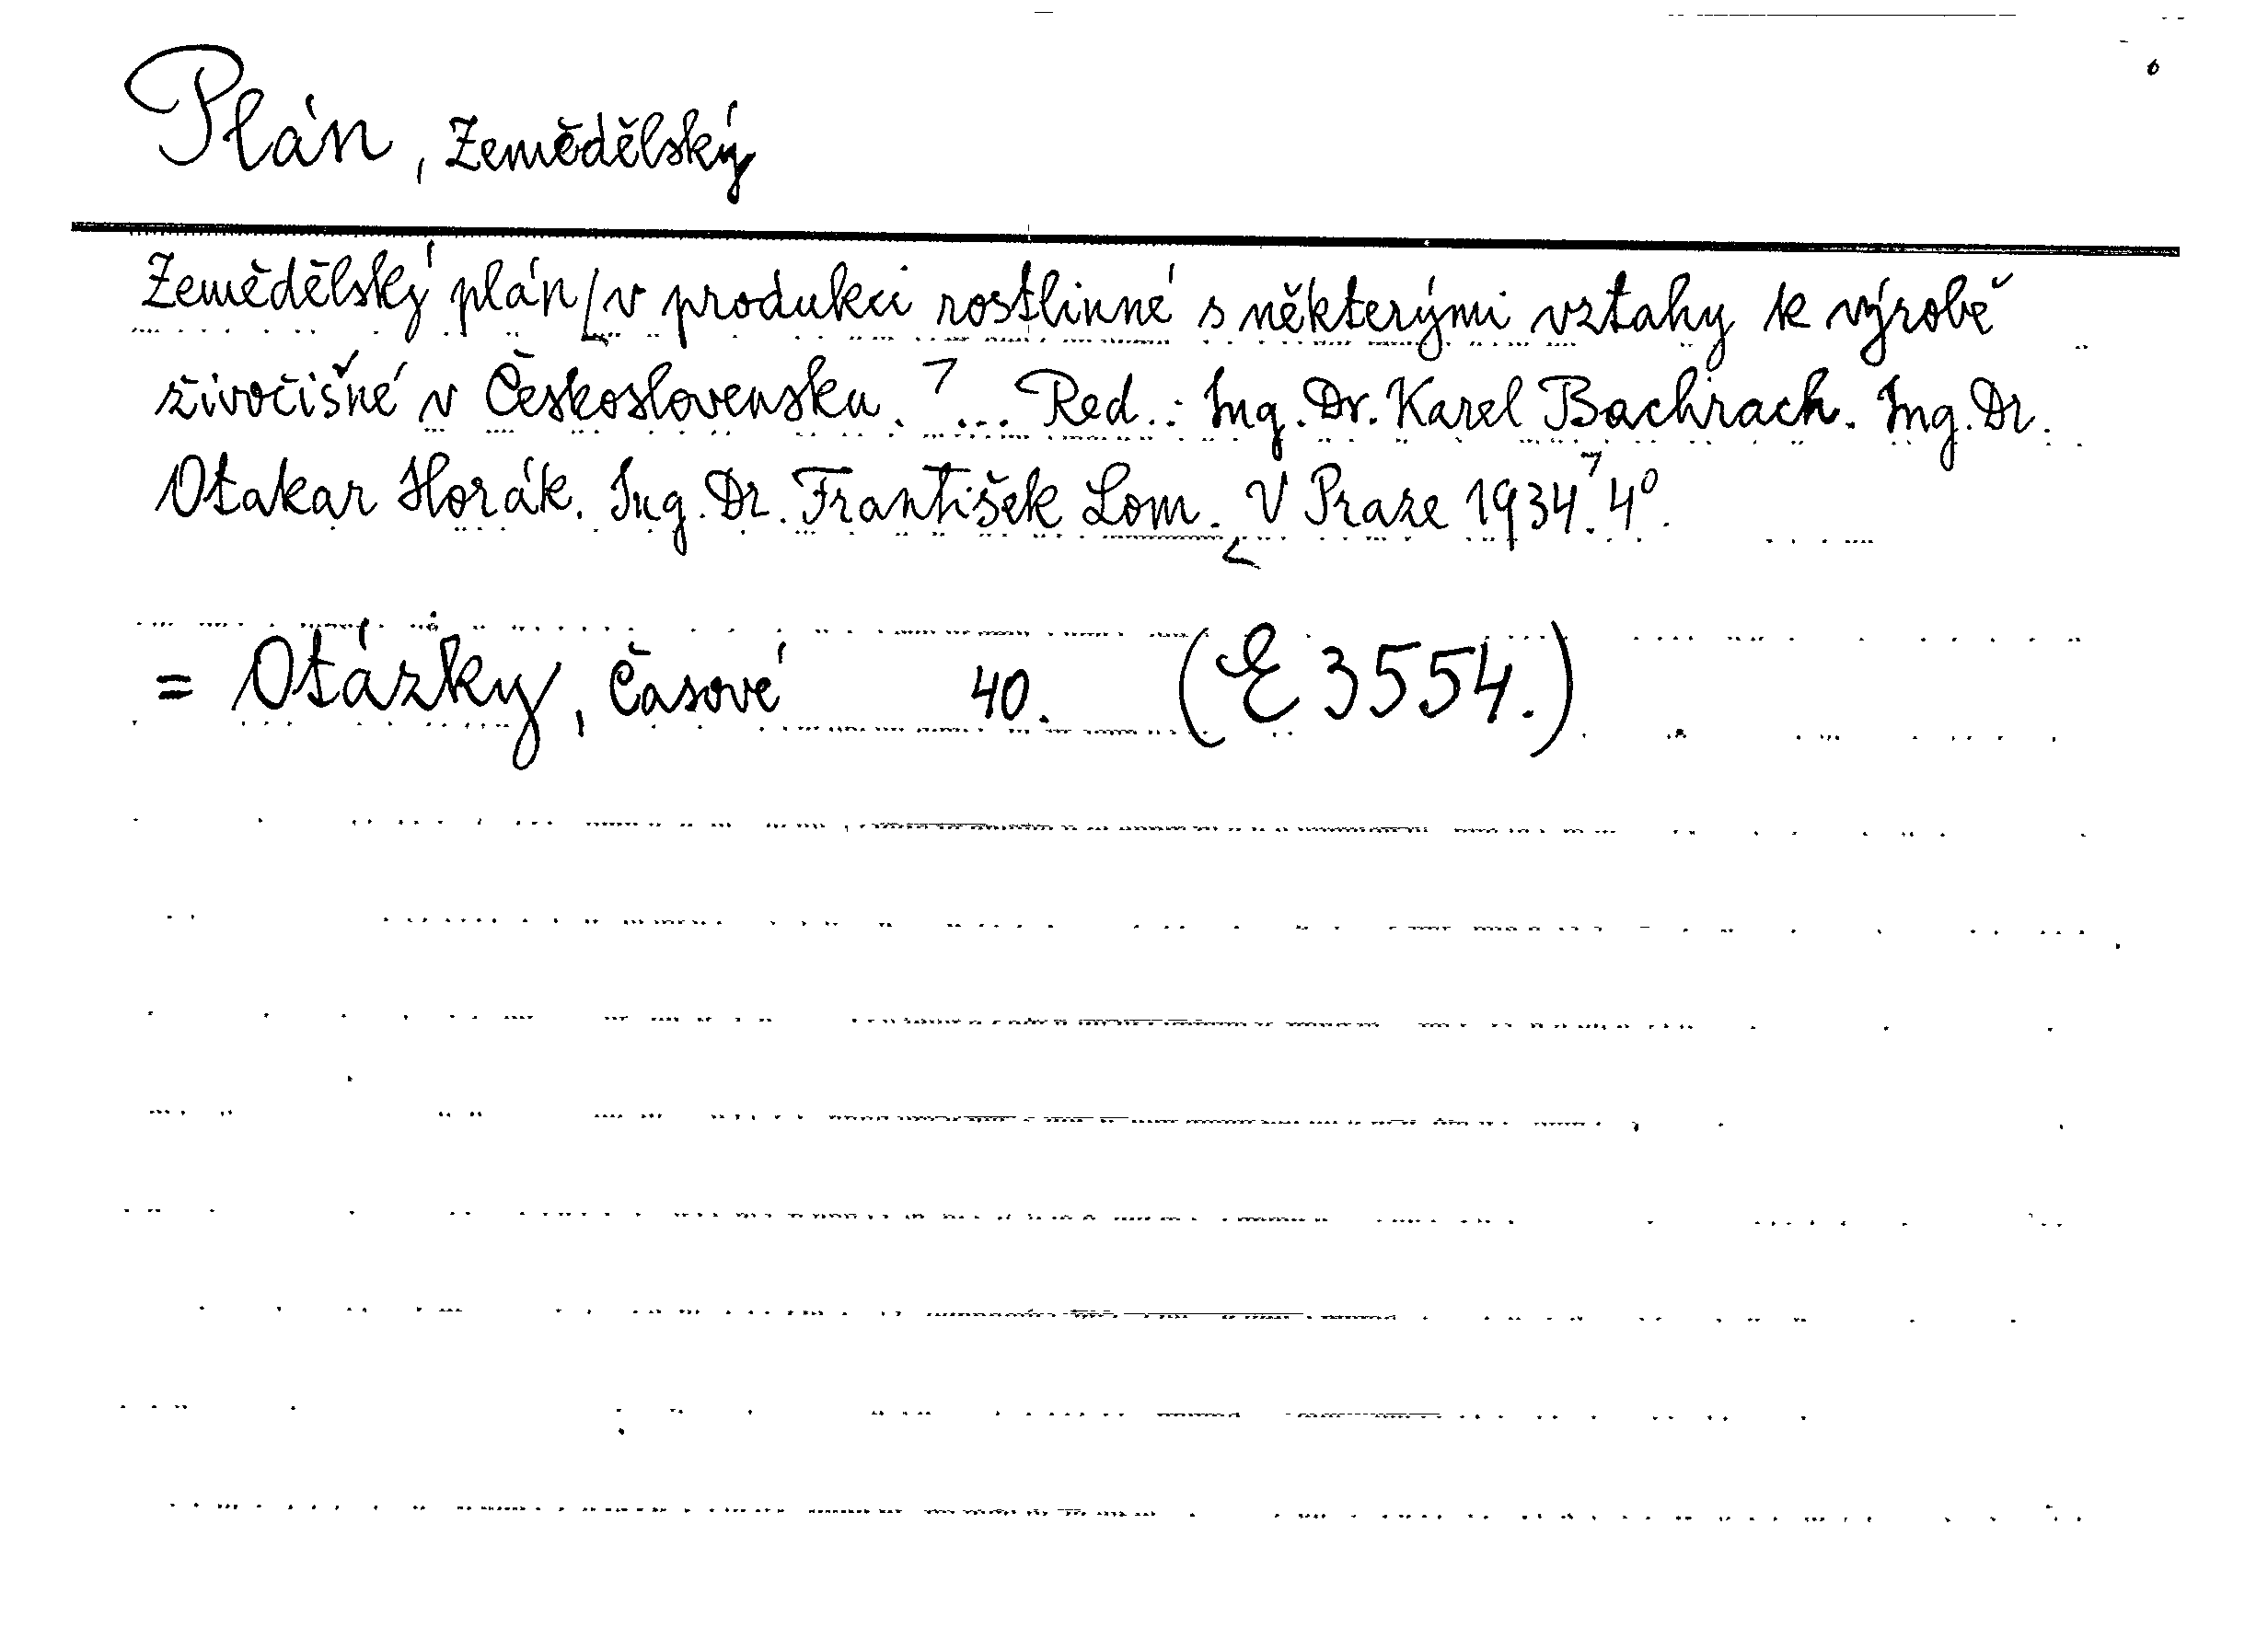 Plán, Zemědělský
Zemědělský plán [v produkci rostlinné s některými vztahy k výrobě
živočišné v Československu.] ... Red.: Ing. Dr. Karel Bachrach. Ing. Dr.
Otakar Horák. Ing. Dr. František Lom. <V Praze 1934.> 4°.
= Otázky, Časové 40. (E 3554.)